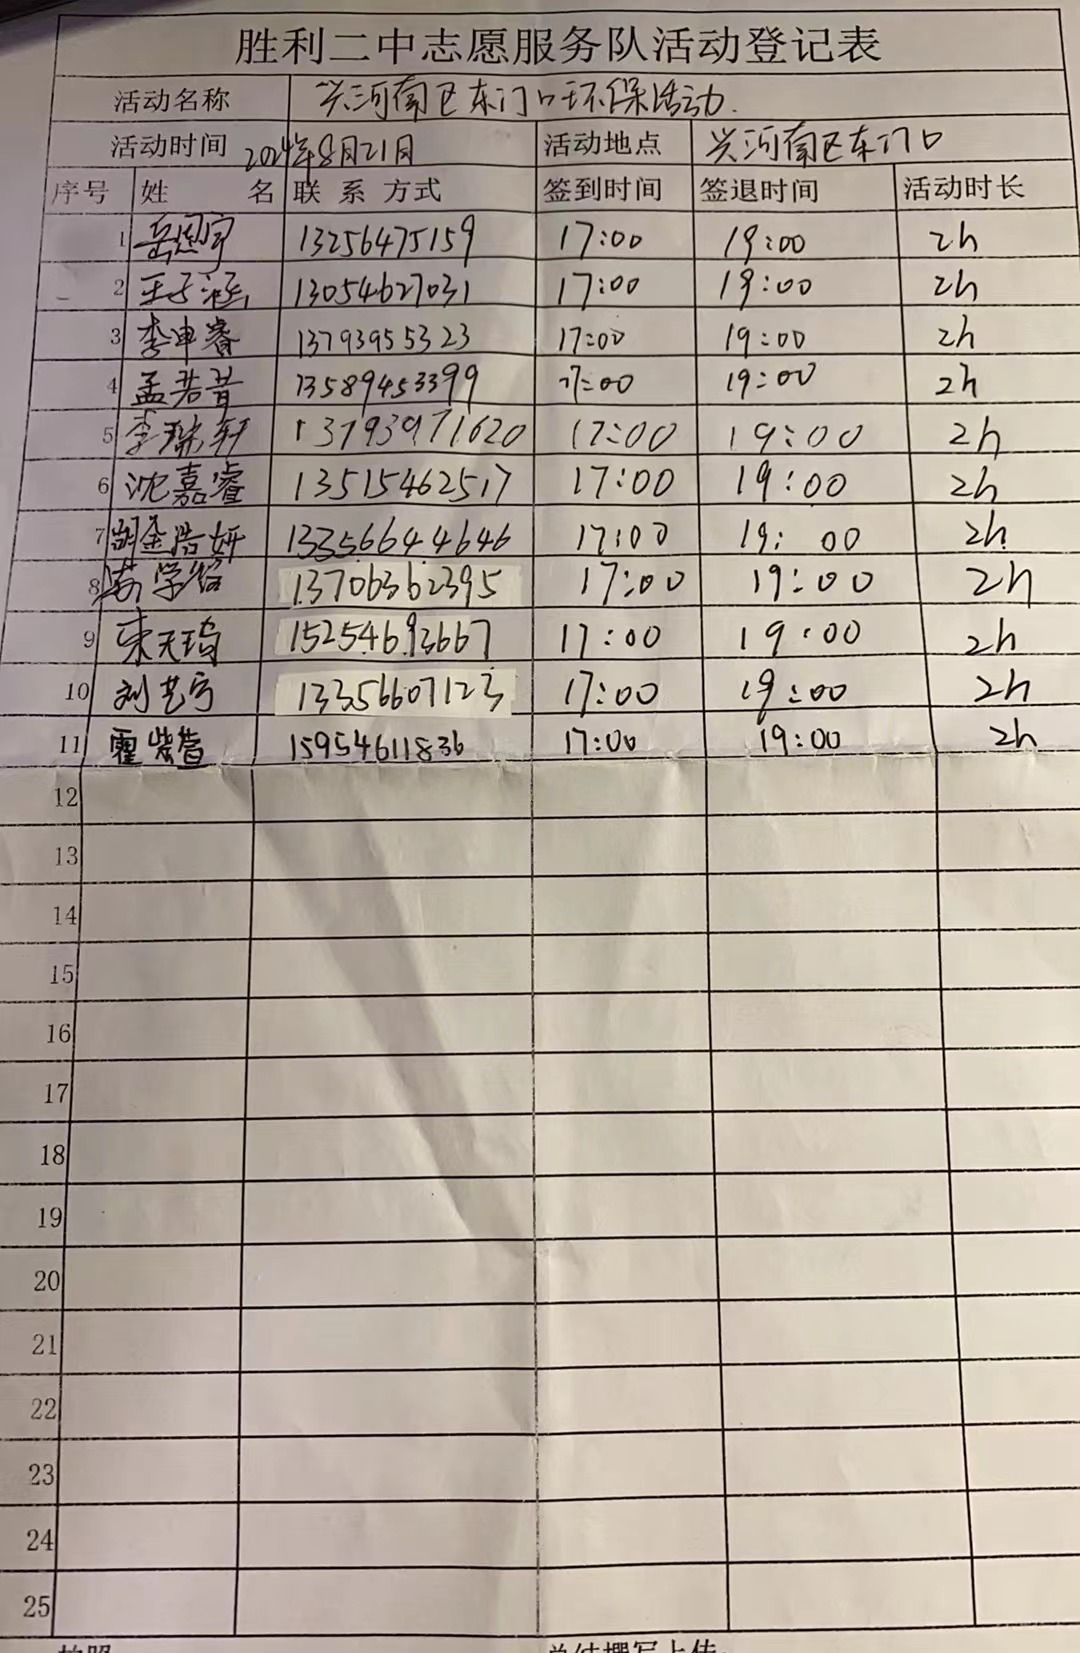 胜利二中志愿服务队活动登记表
活动名称 兴河南区东门口环保活动.
活动时间 2024年8月21日 活动地点 兴河南区东门口
序号 姓 名 联 系 方式 签到时间 签退时间 活动时长
1 岳恩宇 13256475159 17:00 19:00 2h
2 王子涵 13054627031 17:00 19:00 2h
3 李申睿 13793955323 17:00 19:00 2h
4 孟若昔 13589453399 17:00 19:00 2h
5 李瑞轩 13793971620 17:00 19:00 2h
6 沈嘉睿 13515462517 17:00 19:00 2h
7 胡金浩妍 13356644646 17:00 19:00 2h
8 学 13706362395 17:00 19:00 2h
9 宋天琦 15254693667 17:00 19:00 2h
10 刘艺宁 13356607123 17:00 19:00 2h
11 霍紫萱 15954611836 17:00 19:00 2h
12
13
14
15
16
17
18
19
20
21
22
23
24
25
总结撰写上传